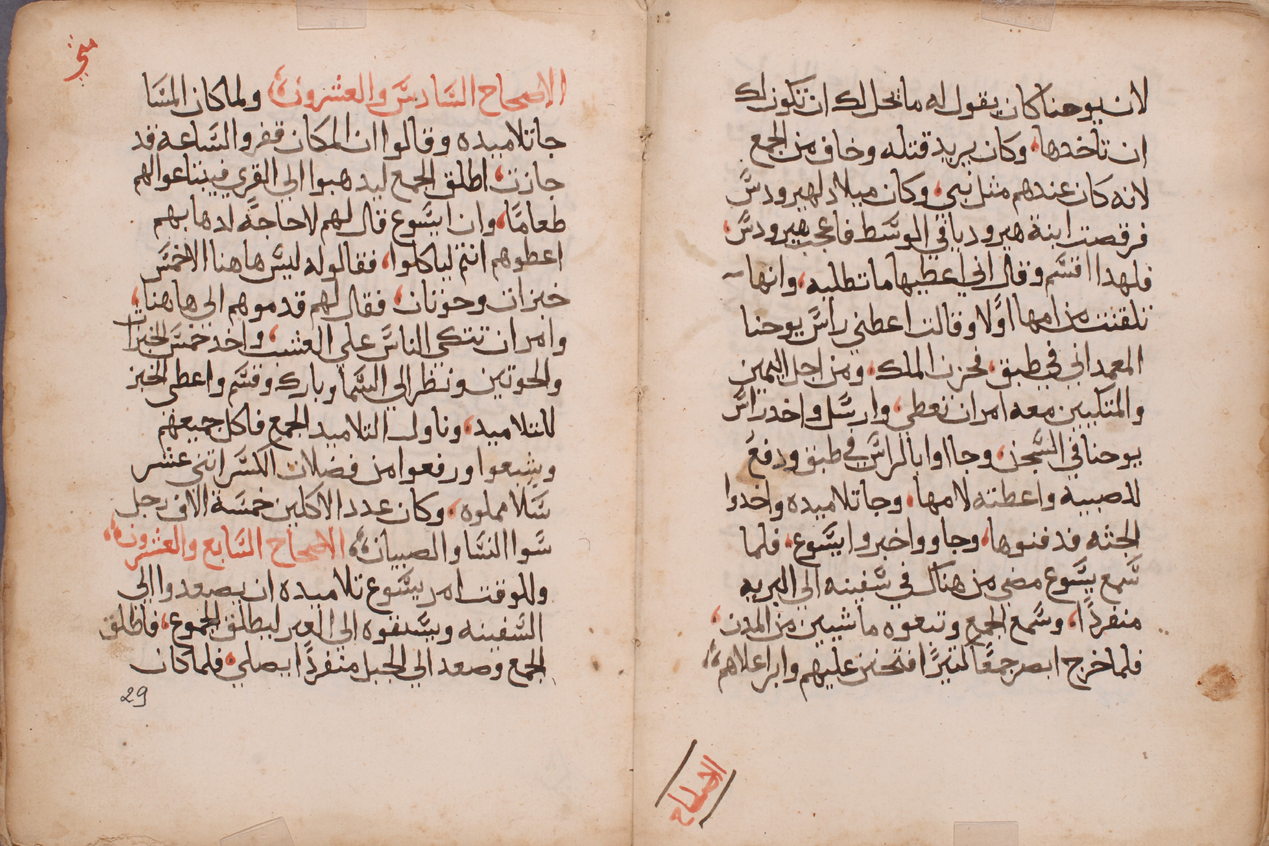 لان يوحنا كان يقول له ما تحل لك ان تكون لك
ان تاخدها، وكان يريد قتله وخاف من الجمع
لانه كان عندهم مثل نبي، وكان ميلاد لهيرودس
فرقصت ابنة هيروديا في الوسط فاعجب هيرودس،
فلهدا اقسم وقال اني اعطيها ما تطلبه، وانها
تلقنت من امها اولا وقالت اعطني راس يوحنا
المعمداني في طبق، فحزن الملك، ومن اجل اليمين
والمتكيين معه امر ان تعطى، وارسل واخد راس
يوحنا في السجن، وجااوا بالراس في طبق ودفع
للصبيه واعطته لامها، وجا تلاميده واخدوا
الجثه فدفنوها، وجاوو اخبروا يسوع، فلما
سمع يسوع مضى من هناك في سفينه الي البريه
منفردا، وسمع الجمع وتبعوه ماشيين من المدن،
فلما خرج ابصر جمعا كتيرا فتحنن عليهم وابرا اعلاهم،
الاصحاح
الاصحاح السادس والعشرون، ولما كان المسا
جا تلاميده وقالوا ان المكان قفر والساعه قد
جازت، اطلق الجمع ليدهبوا الي القري فيبتاعوا لهم
طعاما، وان ايسوع قال لهم لا حاجة لدهابهم
اعطوهم انتم لياكلوا، فقالو له ليس هاهنا الا خمس
خبزات وحوتان، فقال لهم قدموهم الى هاهنا،
وامر ان تتكي الناس علي العشب، واخد خمس الخبزات
والحوتين ونظر الي السما وبارك وقسم واعطى الخبز
للتلاميد، وناول التلاميد الجمع فاكل جميعهم
وشبعوا ورفعوا من فضلات الكسر اثني عشر
سلا مملوه، وكان عدد الاكلين خمسة الاف رجل
سوا النسا والصبيان، الاصحاح السابع والعشرون،
وللوقت امر يسوع تلاميده ان يصعدوا الي
السفينه ويسبقوه الى العبر ليطلق الجموع، فاطلق
الجمع وصعد الي الجبل منفردا يصلي، فلما كان
29